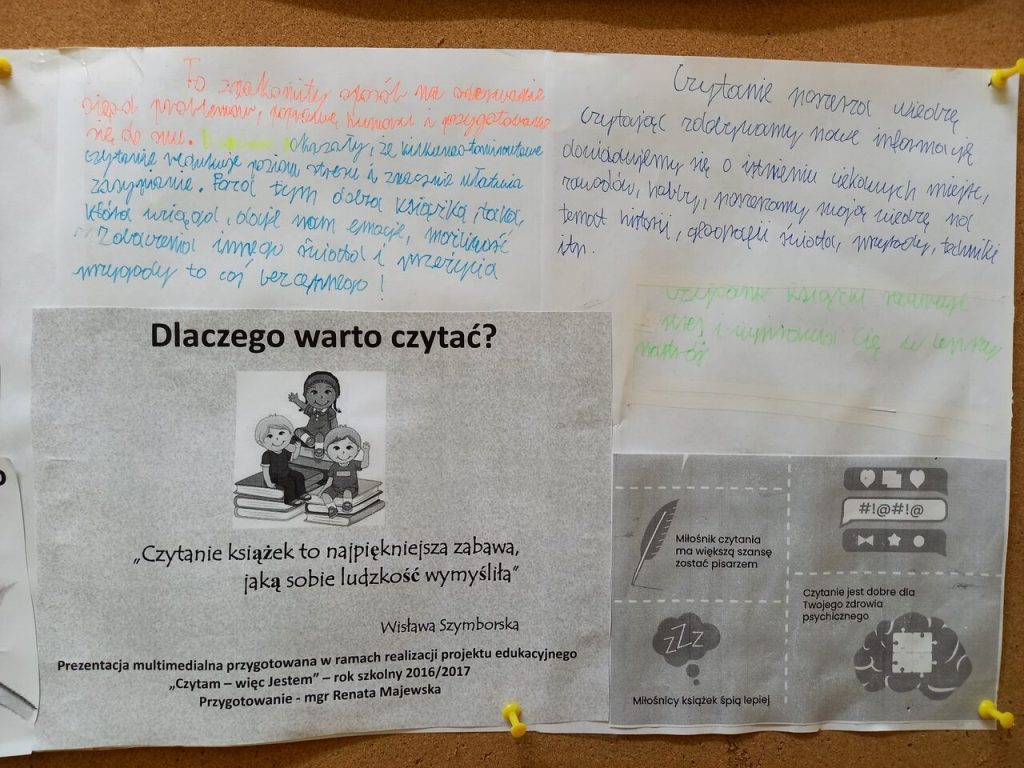 To znakomity sposób na oderwanie
się od problemów, poprawę humoru i przygotowanie
się do snu. okazały, że kilkunasto-minutowe
czytanie redukuje poziom stresu i znacznie ułatwia
zasypianie. Poza tym dobra książka, taka,
która wciąga, daje nam emocje, możliwość
zobaczenia innego świata i przeżycia
przygody to coś bezcennego!
Czytanie poszerza wiedzę
czytając zdobywamy nowe informacje
dowiadujemy się o istnieniu ciekawych miejsc,
zawodów, hobby, poszerzamy swoją wiedzę na
temat historii, geografii świata, przyrody, techniki
itp.
Czytanie książki
stres i wprawia Cię w lepszy
nastrój
Dlaczego warto czytać?
„Czytanie książek to najpiękniejsza zabawa,
jaką sobie ludzkość wymyśliła"
Wisława Szymborska
Prezentacja multimedialna przygotowana w ramach realizacji projektu edukacyjnego
„Czytam – więc Jestem" – rok szkolny 2016/2017
Przygotowanie - mgr Renata Majewska
Miłośnik czytania
ma większą szansę
zostać pisarzem
#!@#!@
Czytanie jest dobre dla
Twojego zdrowia
psychicznego
ZZZ
Miłośnicy książek śpią lepiej